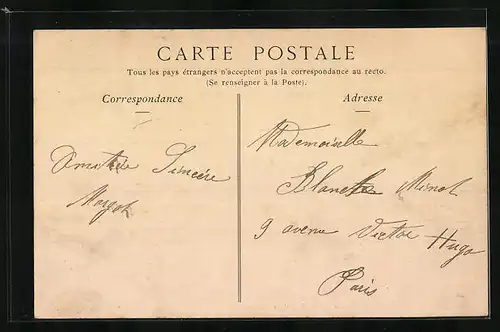 CARTE POSTALE
Tous les pays étrangers n'acceptent pas la correspondance au recto.
(Se renseigner à la Poste).
Correspondance
Adresse
Amitiée Sincère
Margot
Mademoiselle
Blanche Minot
9 avenue Victor Hugo
Paris